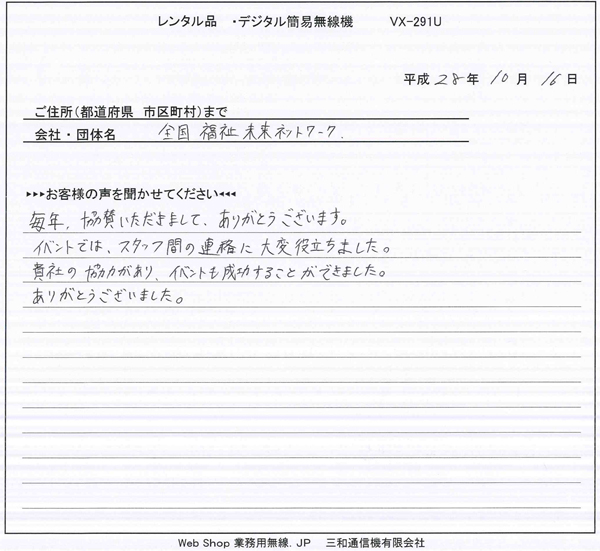 レンタル品 ・デジタル簡易無線機 VX-291U
平成 28 年 10 月 16 日
ご住所(都道府県 市区町村)まで
会社・団体名 全国 福祉 未来ネットワーク.
▸▸▸お客様の声を聞かせてください◂◂◂
毎年、協賛いただきまして、ありがとうございます。
イベントでは、スタッフ間の連絡に大変役立ちました。
貴社の協力があり、イベントも成功することができました。
ありがとうございました。
Web Shop 業務用無線.JP 三和通信機有限会社